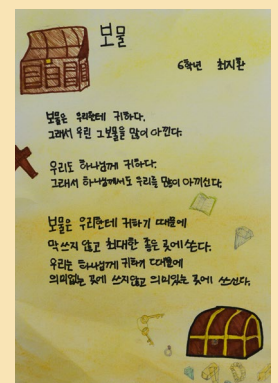 보물
6학년 최지환
보물은 우리한테 귀하다.
그래서 우린 그 보물을 많이 아낀다.
우리도 하나님께 귀하다.
그래서 하나님께서도 우리를 많이 아끼신다.
보물은 우리한테 귀하기 때문에
막쓰지 않고 최대한 좋은 곳에 쓴다.
우리는 하나님께 귀하기 때문에
의미없는 곳에 쓰지않고 의미있는 곳에 쓰신다.